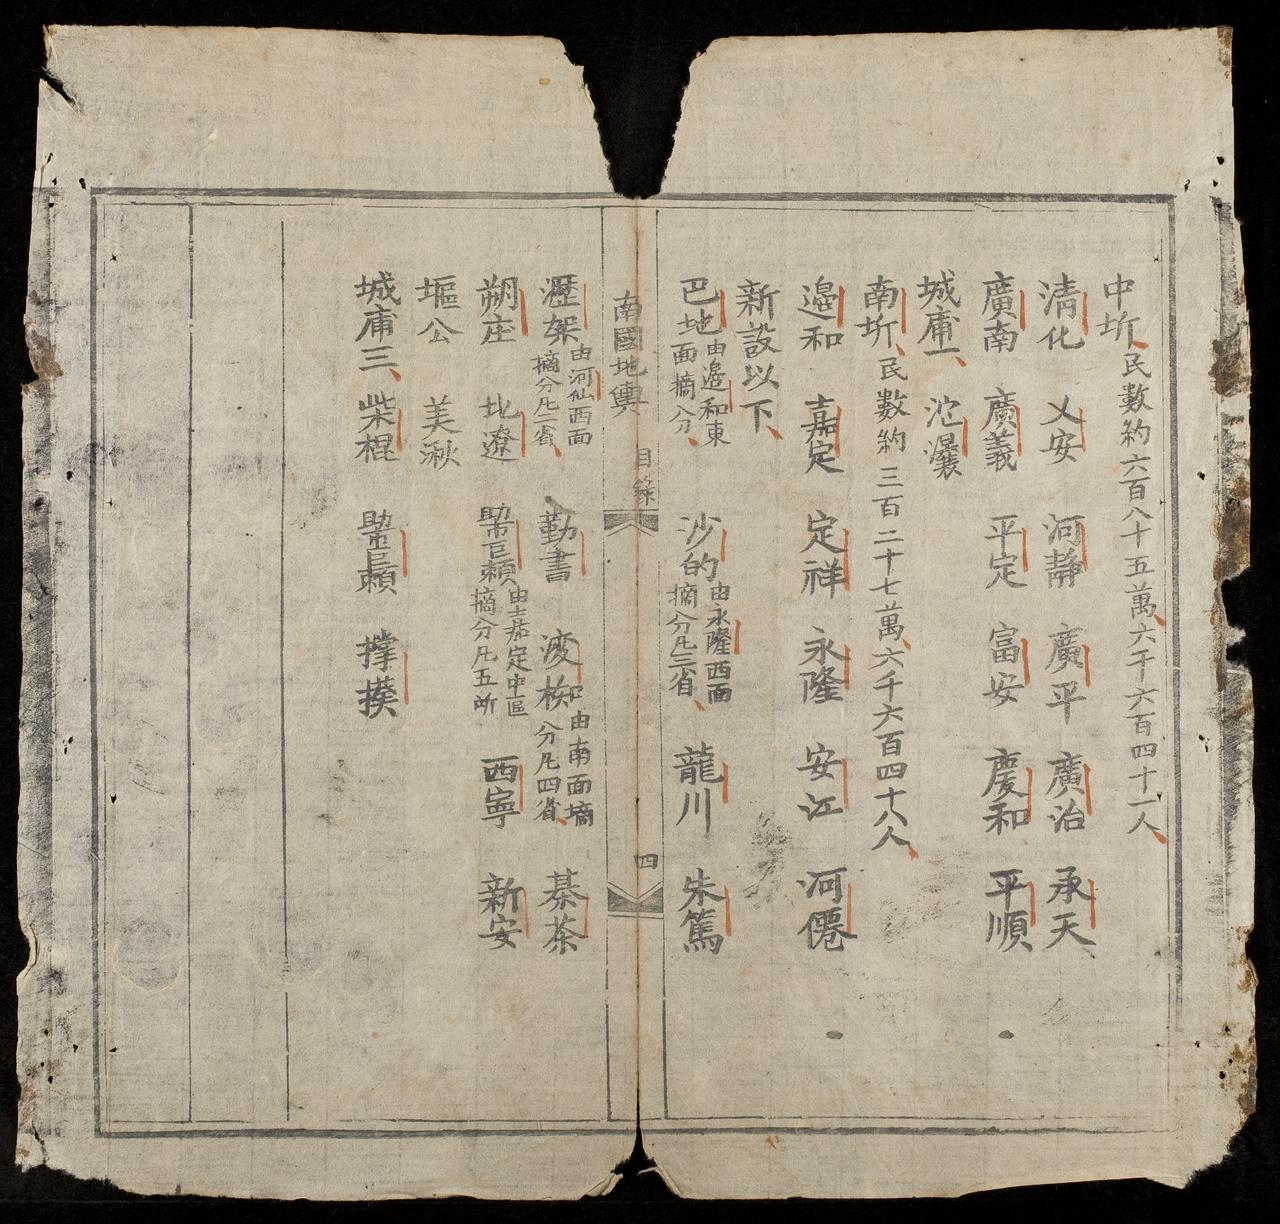 中圻民數約六百八十五萬六千六百四十一人
清化 乂安 河靜 廣平 廣治 承天
廣南 廣義 平定 富安 慶和 平順
城庯一 沱灢
南圻民數約三百二十七萬六千六百四十八人
邊和 嘉定 定祥 永隆 安江 河僊
新設以下
巴地由邊和東面摘分 沙的由永隆西面摘分凡三省 龍川 朱篤
南國地輿 目錄 四
瀝架由河仙西面摘分凡二省 勤書 渡柳由南面摘分凡四省 綦茶
朔庄 北遼 由嘉定中區摘分凡五所 西寧 新安
塸公 美湫
城庯三 柴棍 撑撲